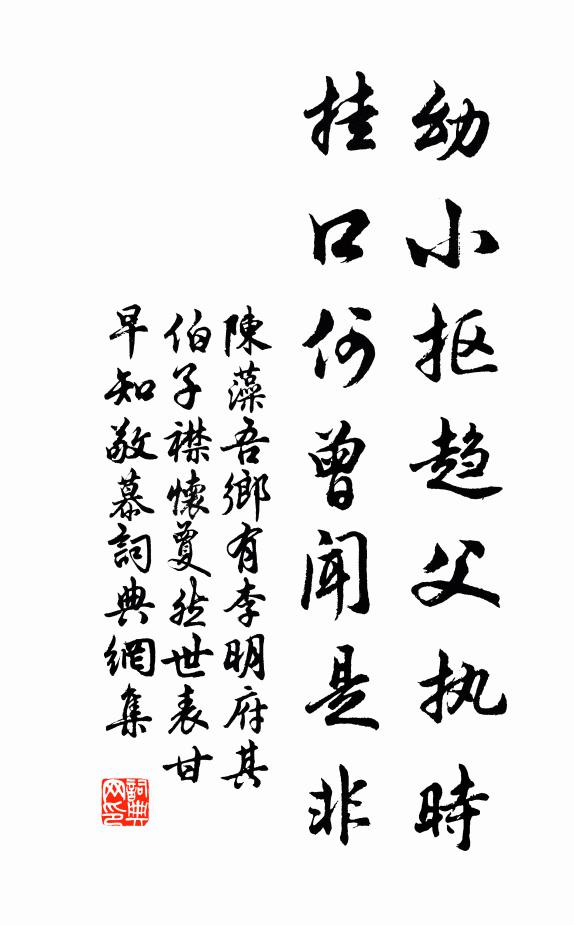 幼小抠趋父执時
挂口何曾闻是非
陳藻吾鄉有李明府其
伯子襟懷敻然世表甘
早知敬慕詞典網集
詞典網印